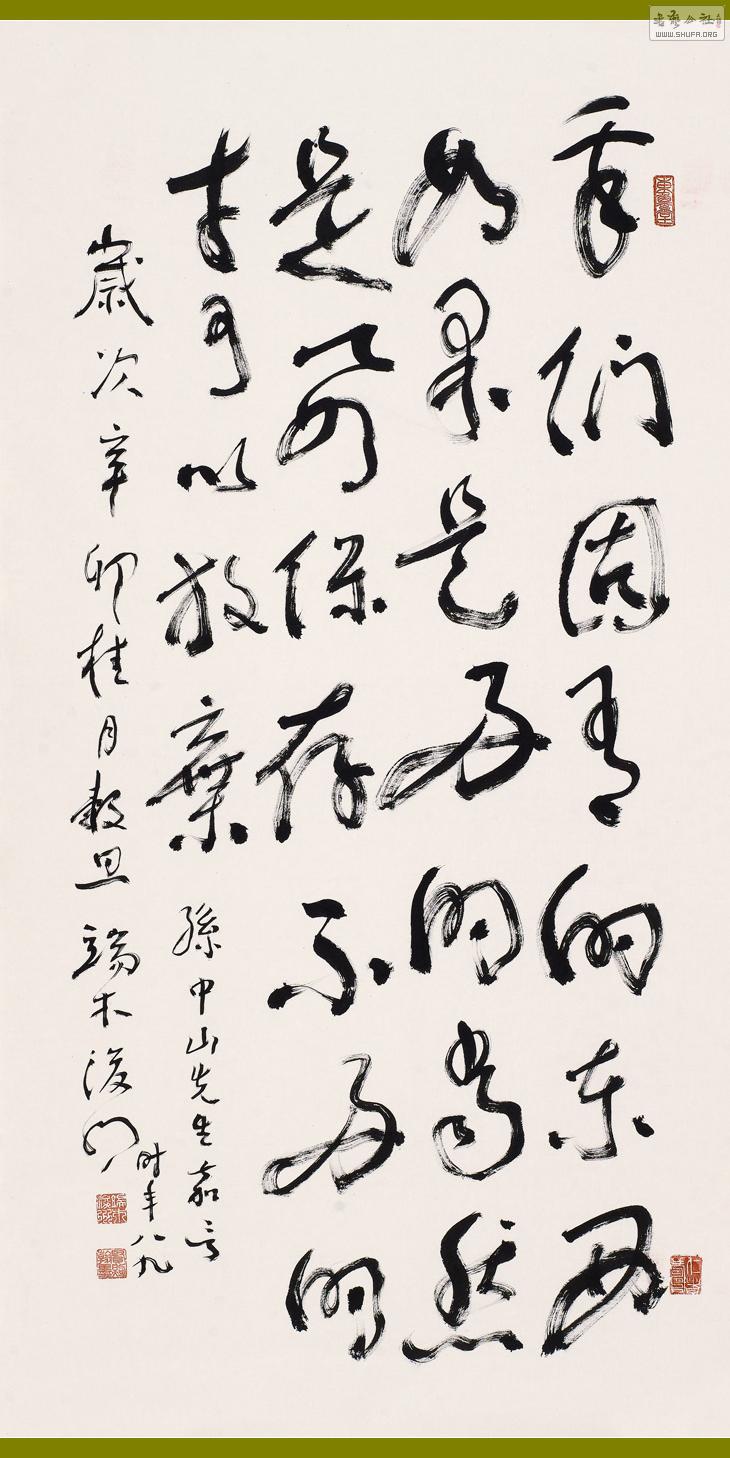 書藝公社
WWW.SHUFA.ORG
我們固有的東西
如果是好的當然
是要保存不好的
才可以放棄 孫中山先生嘉言
歲次辛卯桂月穀旦 端木
時年八九